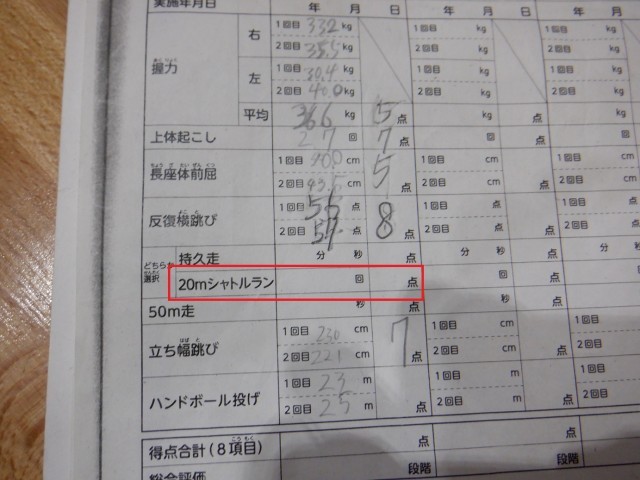 実施年月日 年 月 日 年 月 日 年 月 日
握力 あくりょく 右 1回目 33.2 kg 1回目 kg 1回目 kg
2回目 35.5 kg 2回目 kg 2回目 kg
左 1回目 30.4 kg 1回目 kg 1回目 kg
2回目 40.0 kg 2回目 kg 2回目 kg
平均 36.6 kg 5 点 kg 点 kg
上体起こし 27 回 7 点 回 点 回
長座体前屈 ちょうざたいぜんくつ 1回目 40.0 cm 5 点 1回目 cm 1回目 cm
2回目 cm 2回目 cm 点 2回目 cm
反復横跳び 1回目 56 点 8 点 1回目 点 1回目 点
2回目 点 2回目 点 点 2回目 点
どちらか選択 せんたく 持久走 分 秒 点 分 秒 点 分 秒
20mシャトルラン 回 点 回 点 回
50m走 秒 点 秒 点 秒
立ち幅跳び はばと 1回目 230 cm 7 点 1回目 cm 1回目 cm
2回目 221 cm 2回目 cm 点 2回目 cm
ハンドボール投げ 1回目 23 m 1回目 m 1回目 m
2回目 25 m 点 2回目 m 点 2回目 m
得点合計(8項目) こうもく 点 点
総合評価 段階 段階